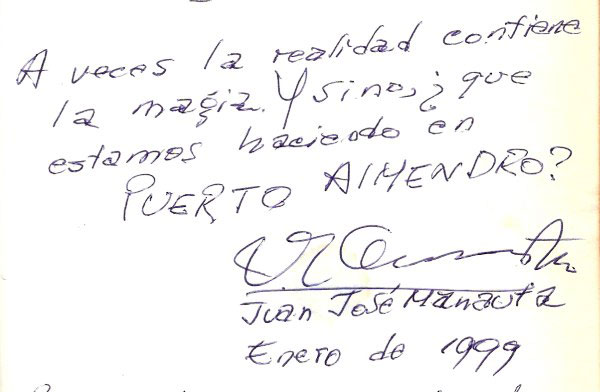 A veces la realidad contiene
la magia. Y sino, ¿ que
estamos haciendo en
PUERTO AlMENDRO?
Juan José Manauta
Enero de 1999